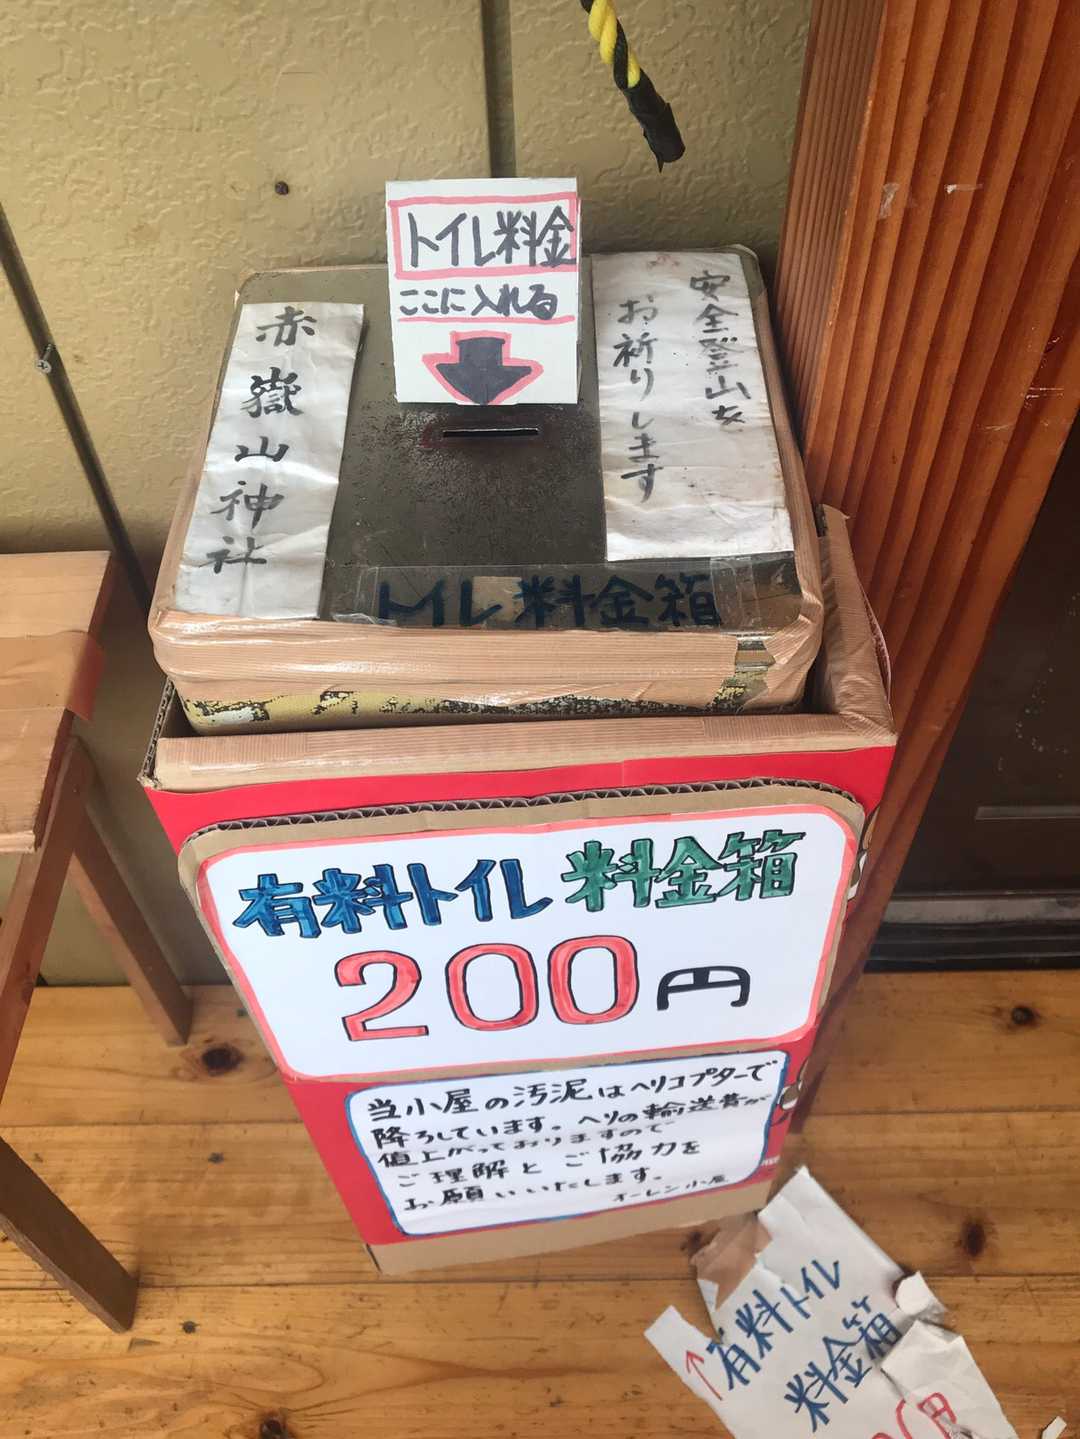 トイレ料金
ここに入れる
安全登山を
お祈りします
赤嶽山神社
トイレ料金箱
有料トイレ料金箱
200円
当小屋の汚泥はヘリコプターで
降ろしています。ヘリの輸送費が
値上がっておりますので
ご理解とご協力を
お願いいたします。
オーレン小屋
↑有料トイレ
料金箱
円